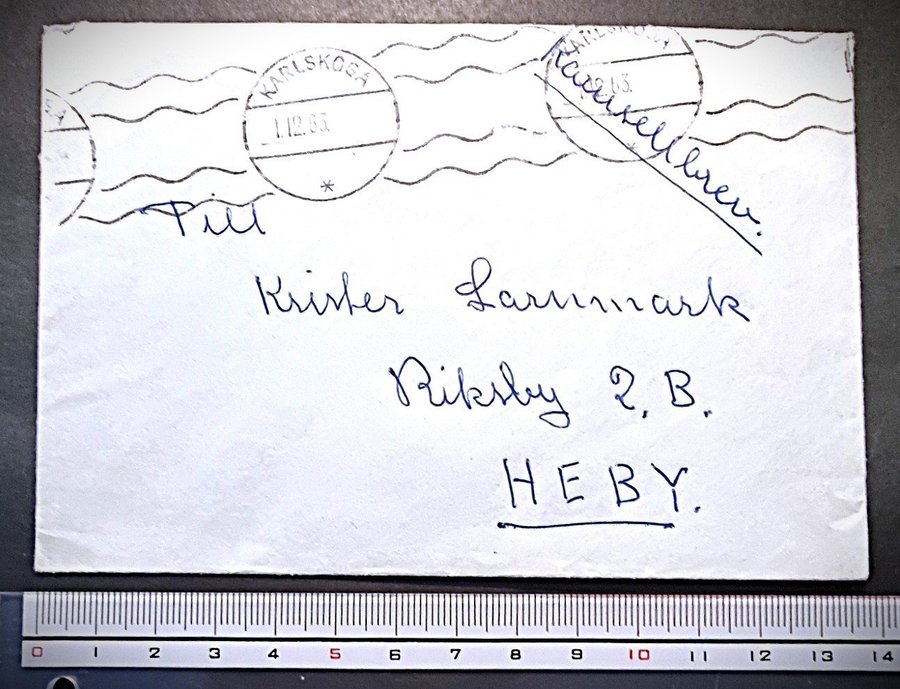 KARLSKOGA
1.12.63.
KARLSKOGA
2.63.
Karusellbrev.
Till
Krister Larnmark
Riksby 2. B.
HEBY.
0 1 2 3 4 5 6 7 8 9 10 11 12 13 14